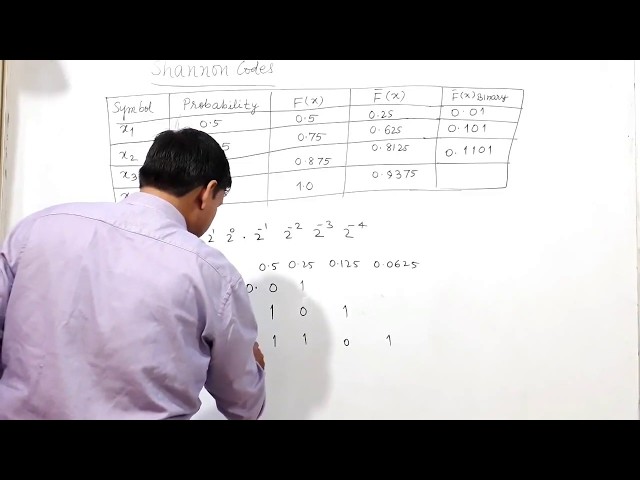 Shannon Codes
Symbol Probability F(x) F̄(x) F̄(x) Binary
x₁ 0.5 0.5 0.25 0.01
x₂ 5 0.75 0.625 0.101
x₃ 0.875 0.8125 0.1101
1.0 0.9375
2¹ 2⁰ . 2⁻¹ 2⁻² 2⁻³ 2⁻⁴
0.5 0.25 0.125 0.0625
0. 0 1
1 0 1
1 1 0 1